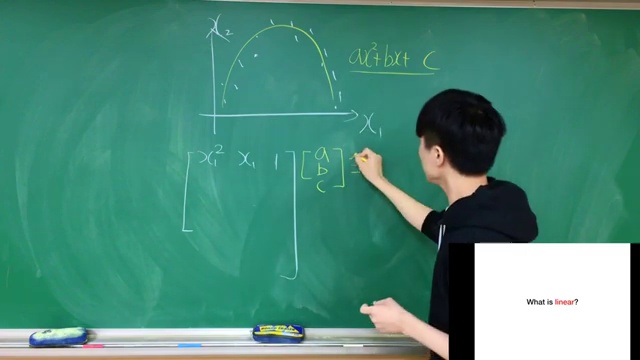 x₂
ax²+bx+ c
x₁
[x₁² x₁ 1] [a b c] =
What is linear?